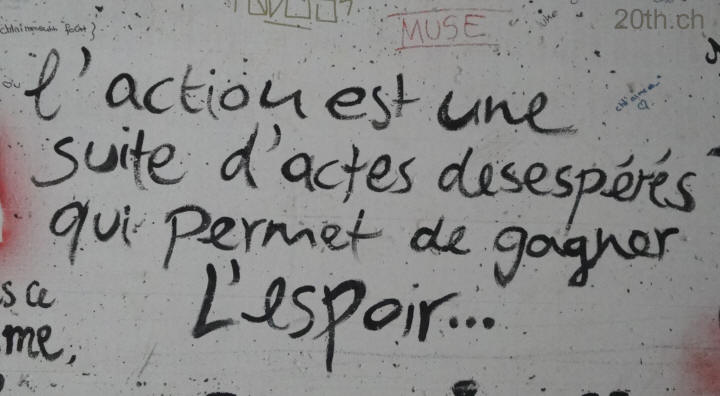 MUSE
20th.ch
l'action est une
suite d'actes desespérés
qui permet de gagner
L'espoir...
s ce
me,